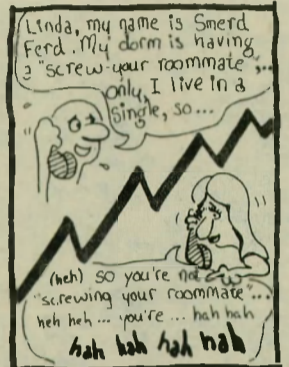 Linda, my name is Smerd
Ferd. My dorm is having
a "screw-your roommate",..
only, I live in a
single, so...
(heh) so you're not
"screwing your roommate"...
heh heh... you're... hah hah
hah hah hah hah